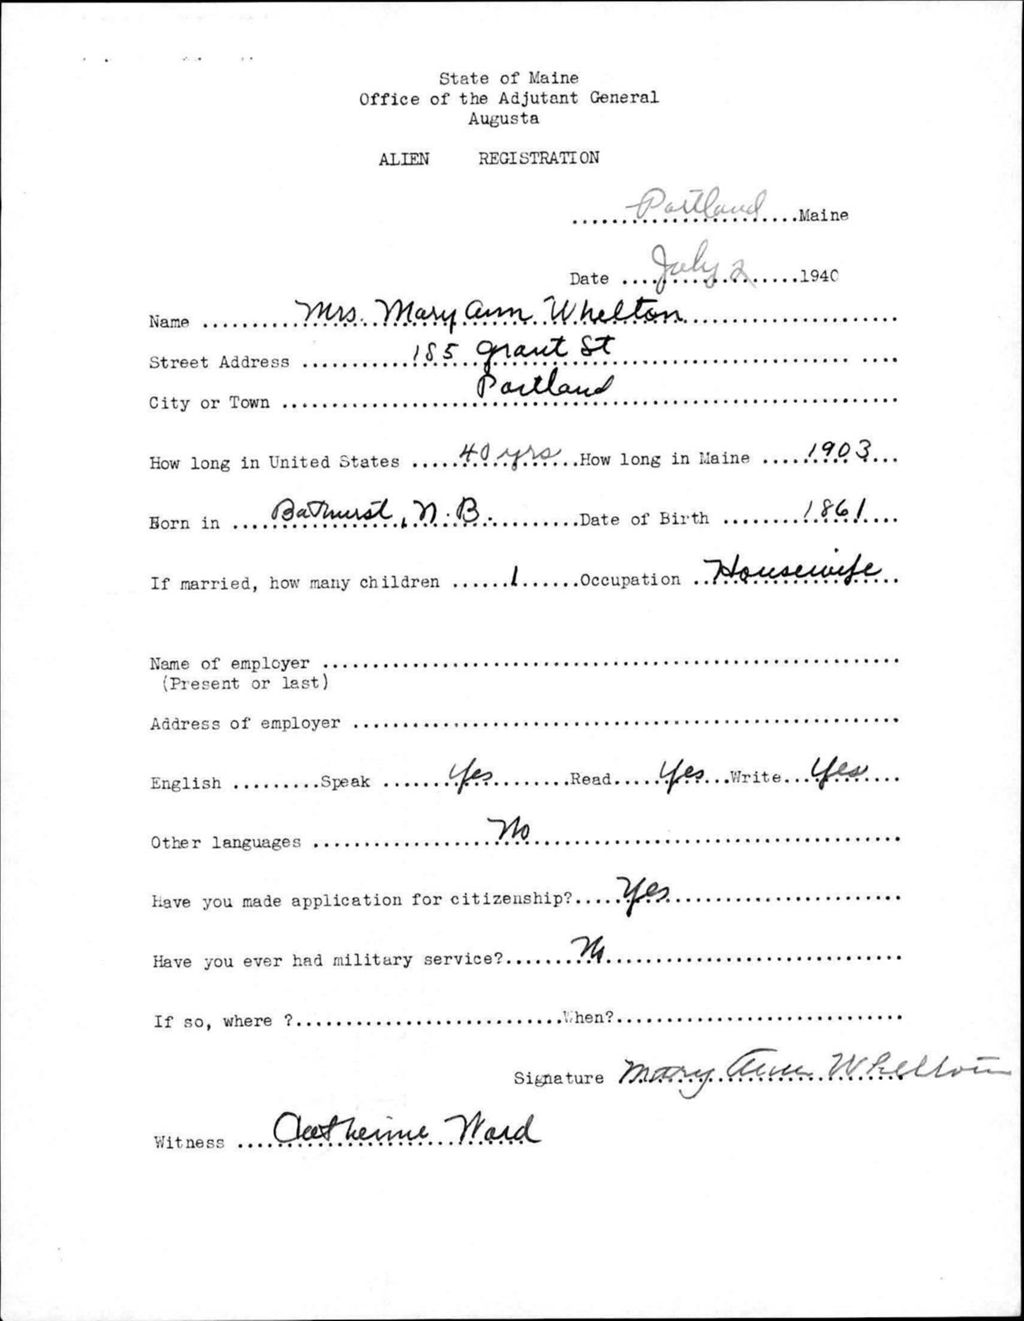 State of Maine
Office of the Adjutant General
Augusta
ALIEN REGISTRATION
Portland Maine
Date July 2 1940
Name Mrs. Mary Ann Whelton
Street Address 185 Grant St
City or Town Portland
How long in United States 40 yrs How long in Maine 1903
Born in Bathurst, N.B. Date of Birth 1861
If married, how many children 1 Occupation Housewife
Name of employer
(Present or last)
Address of employer
English Speak Yes Read Yes Write Yes
Other languages No
Have you made application for citizenship? Yes
Have you ever had military service? No
If so, where ? When?
Signature Mary Ann Whelton
Witness Catherine Ward